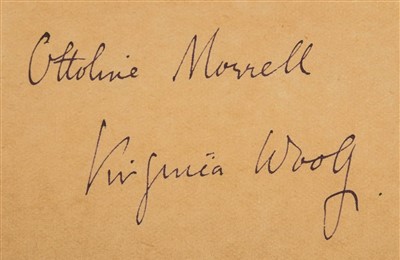 Ottoline Morrell
Virginia Woolf